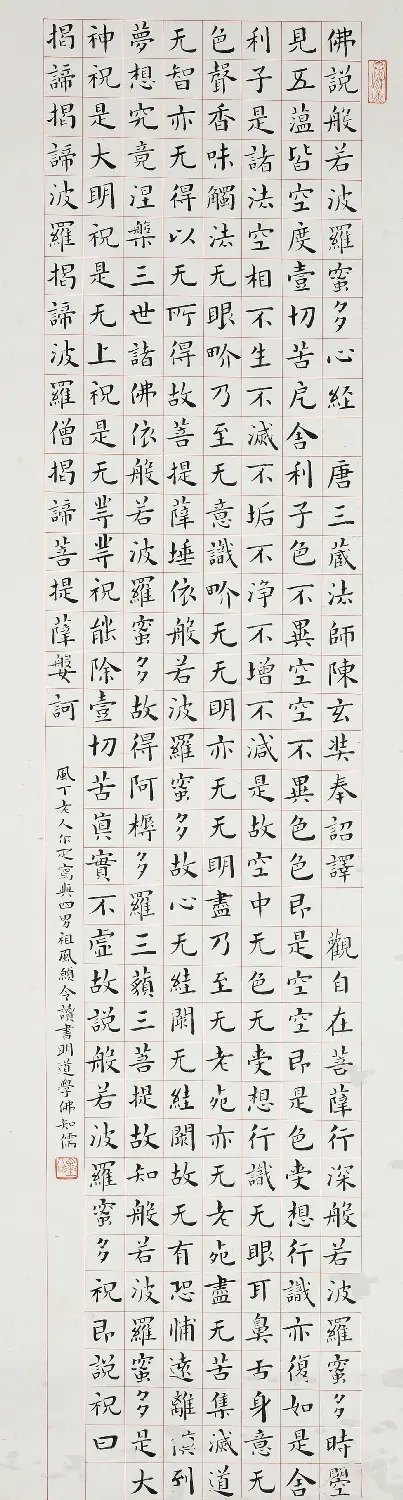 佛說般若波羅蜜多心經 唐三藏法師陳玄奘奉詔譯 觀自在菩薩行深般若波羅蜜多時曌
見五薀皆空度壹切苦戹舍利子色不異空空不異色色即是空空即是色受想行識亦復如是舍
利子是諸法空相不生不滅不垢不淨不增不減是故空中无色无受想行識无眼耳鼻舌身意无
色聲香味觸法无眼界乃至无意識界无无明亦无无明盡乃至无老死亦无老死盡无苦集滅道
无智亦无得以无所得故菩提薩埵依般若波羅蜜多故心无絓閡无絓閡故无有恐怖遠離
夢想究竟涅槃三世諸佛依般若波羅蜜多故得阿耨多羅三藐三菩提故知般若波羅蜜多是大
神祝是大明祝是无上祝是无等等祝能除壹切苦真實不虛故說般若波羅蜜多祝即說祝曰
揭諦揭諦波羅揭諦波羅僧揭諦菩提薩婆訶
風丁老人尒疋寫與四男祖風令讀書明道學佛知儒